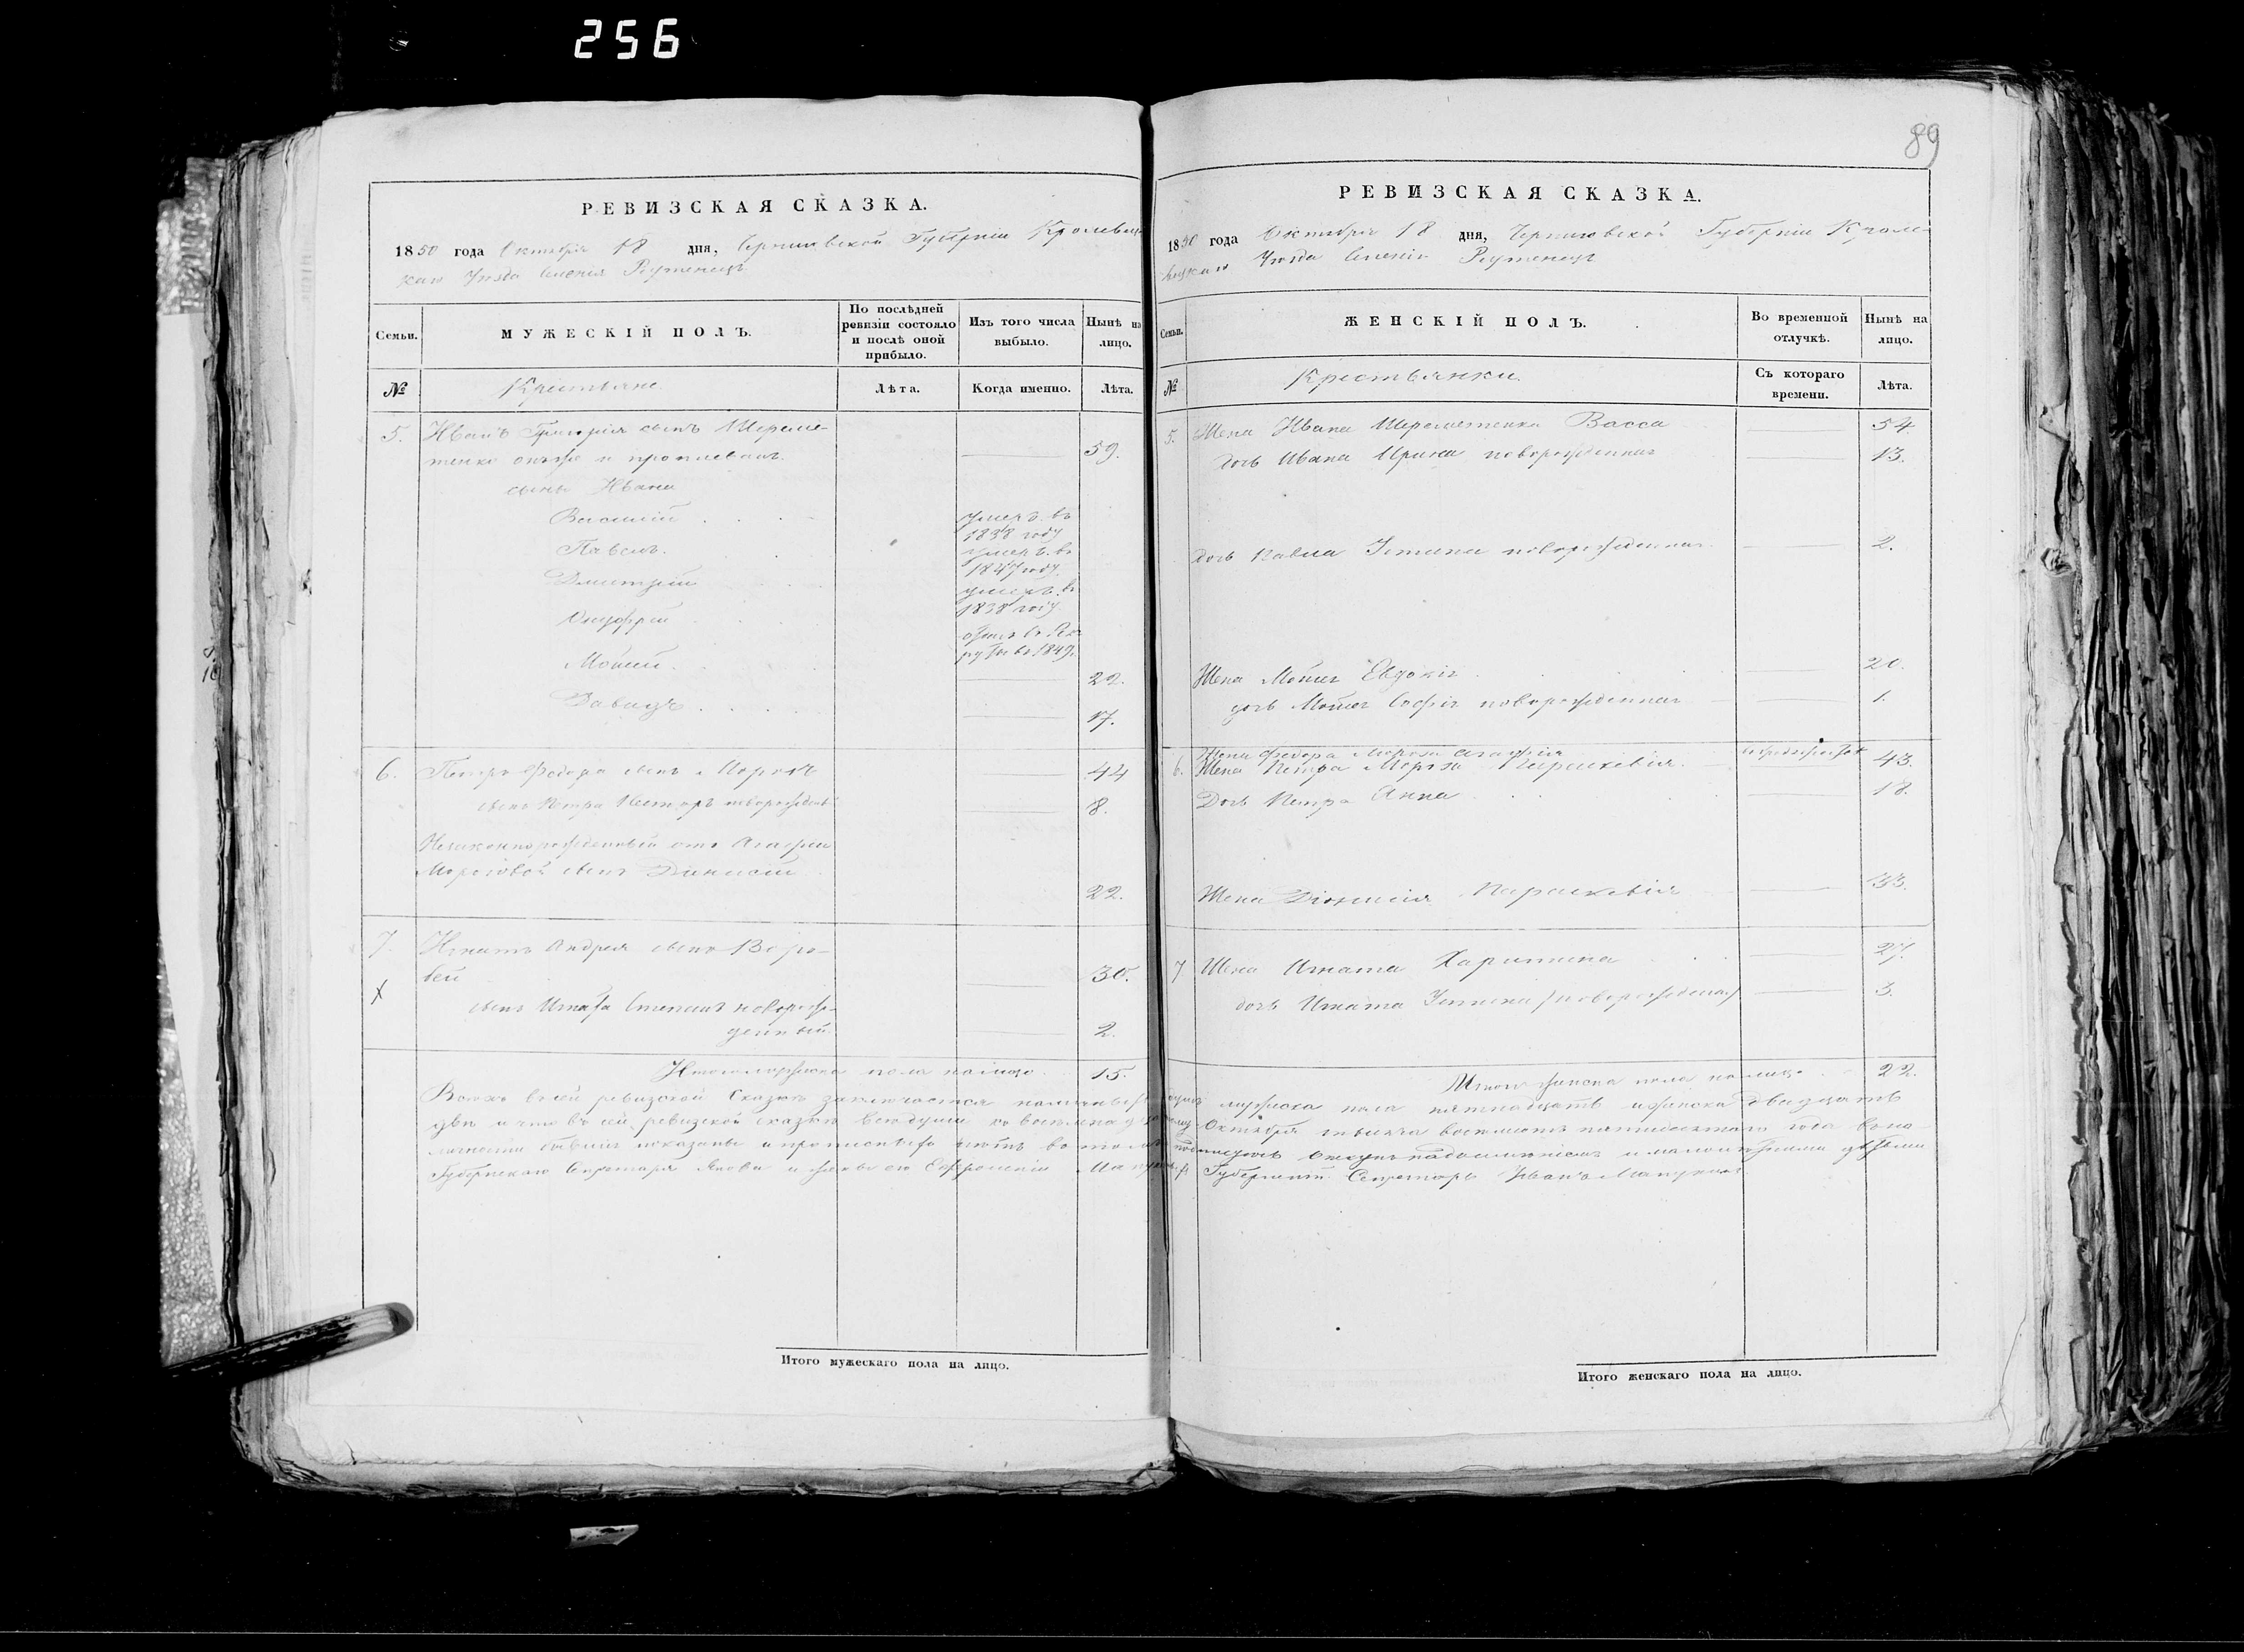 256
89
РЕВИЗСКАЯ СКАЗКА.
1850 года Октября 18 дня, Черниговской Губернiи Кролевец-
каго Уезда Селенiя Рутенецъ
Семьи.
МУЖЕСКIЙ ПОЛЪ.
По послѣдней
ревизiи состояло
и послѣ оной
прибыло.
Изъ того числа
выбыло.
Нынѣ на
лицо.
№
Крестьяне
Лѣта.
Когда именно.
Лѣта.
5. Иванъ Григорiя сынъ Шереме-
тенко онъ же и 59.
сыны Ивана
Василiй умеръ въ
1838 году
Павелъ умеръ въ
1847 году
Дмитрiй умеръ въ
1838 году
Онуфрiй отданъ въ Рек
руты въ 1849.
Мойсей 22.
Давидъ 17.
6. Петръ Федора сынъ Морозъ 44
сынъ Петра Несторъ новорожден 8.
Незаконнорожденный отъ Агафiи
Морозовой сынъ Дiнисiй
22.
7. Игнатъ Андрея сынъ Воро-
бей 30.
сынъ Игната Степанъ новорож-
денный 2.
Итого мужеска пола налицо 15.
РЕВИЗСКАЯ СКАЗКА.
1850 года Октября 18 дня, Черниговской Губернiи Кроле-
вецкаго Уезда Селенiя Рутенецъ
Семьи.
ЖЕНСКIЙ ПОЛЪ.
Во временной
отлучкѣ.
Нынѣ на
лицо.
№
Крестьянки
Съ котораго
времени.
Лѣта.
5. Жена Ивана Шереметенка Васса 54.
дочь Ивана Ирина новорожденная 13.
дочь Павла Устина новорожденная 2.
Жена Мойсея Евдокiя 20.
дочь Мойсея Софiя новорожденная 1.
Жена Федора Мороза Агафiя
6. Жена Петра Мороза Параскевiя 43.
Дочь Петра Анна 18.
Жена Дiонисiя Параскевiя 33.
7 Жена Игната Харитина 27.
дочь Игната Устина (новорожденная) 3.
Итого женска пола налицо 22.
Всехъ въ сей ревизской Сказкѣ заключается налицо душъ мужеска пола пятнадцать и женска двадцать
двѣ и что въ сей ревизской сказкѣ все души Октября тысяча восемьсотъ пятидесятого года
Губернскаго Секретаря Якова и жены его Ефросинiи Губернскiй Секретарь Иванъ
Итого мужескаго пола на лицо.
Итого женскаго пола на лицо.